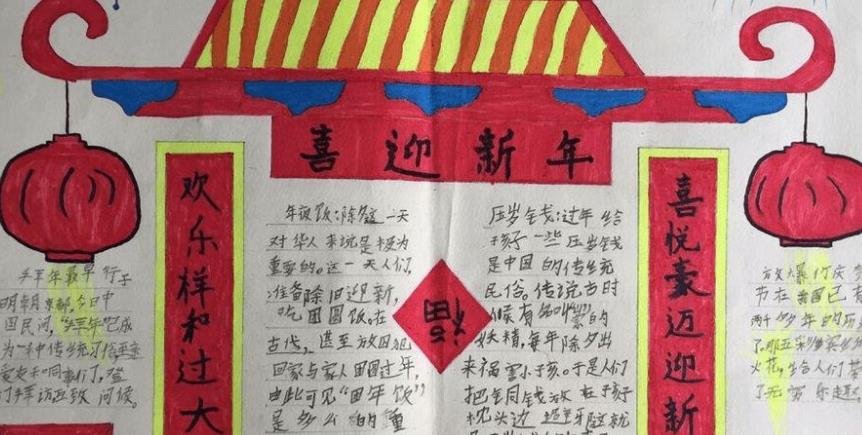 喜迎新年
欢乐祥和过大
喜悦豪迈迎新
福
年夜饭:除夕这一天
对华人来说是极为
重要的。这一天人们
准备除旧迎新,
吃团圆饭。在
古代,甚至放囚犯
回家与家人团圆过年,
由此可见“团年饭”
是多么的重
压岁钱:过年给
孩子一些压岁钱
是中国的传统
民俗。传说古时
候有名叫“祟”的
妖精,每年除夕出
来祸害小孩。于是人们
把铜钱放在孩子
枕头边
拜年最早行于
明朝京都,今日中
国民间,“拜年”已成
为一种传统习俗
同事们,登
门拜访互致问候。
放爆竹庆
节在我国已有
两千多年的历
了。那五彩
火花,给人们
了无穷乐趣